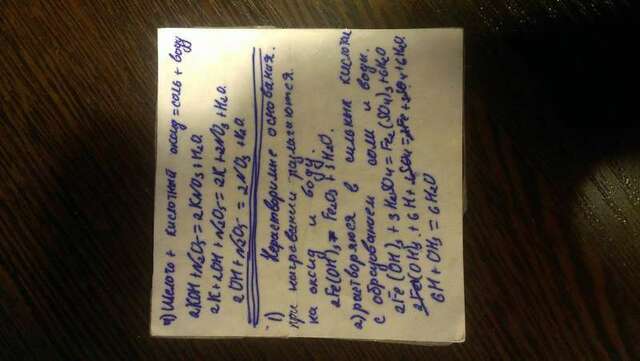 4) Щелочь + кислотный оксид = соль + воду
2KOH + N2O5 = 2KNO3 + H2O
2K + 2OH + N2O5 = 2K + 2NO3 + H2O.
2OH + N2O5 = 2NO3 + H2O
Нерастворимые основания.
1) при нагревании разлагаются
на оксид и воду.
2Fe(OH)3 = Fe2O3 + 3H2O.
2) растворяются в сильных кислотах
с образованием соли и воды.
2Fe(OH)3 + 3H2SO4 = Fe2(SO4)3 + 6H2O
2Fe(OH)3 + 6H + 3SO4 = 2Fe + 3SO4 + 6H2O.
6H + OH3 = 6H2O